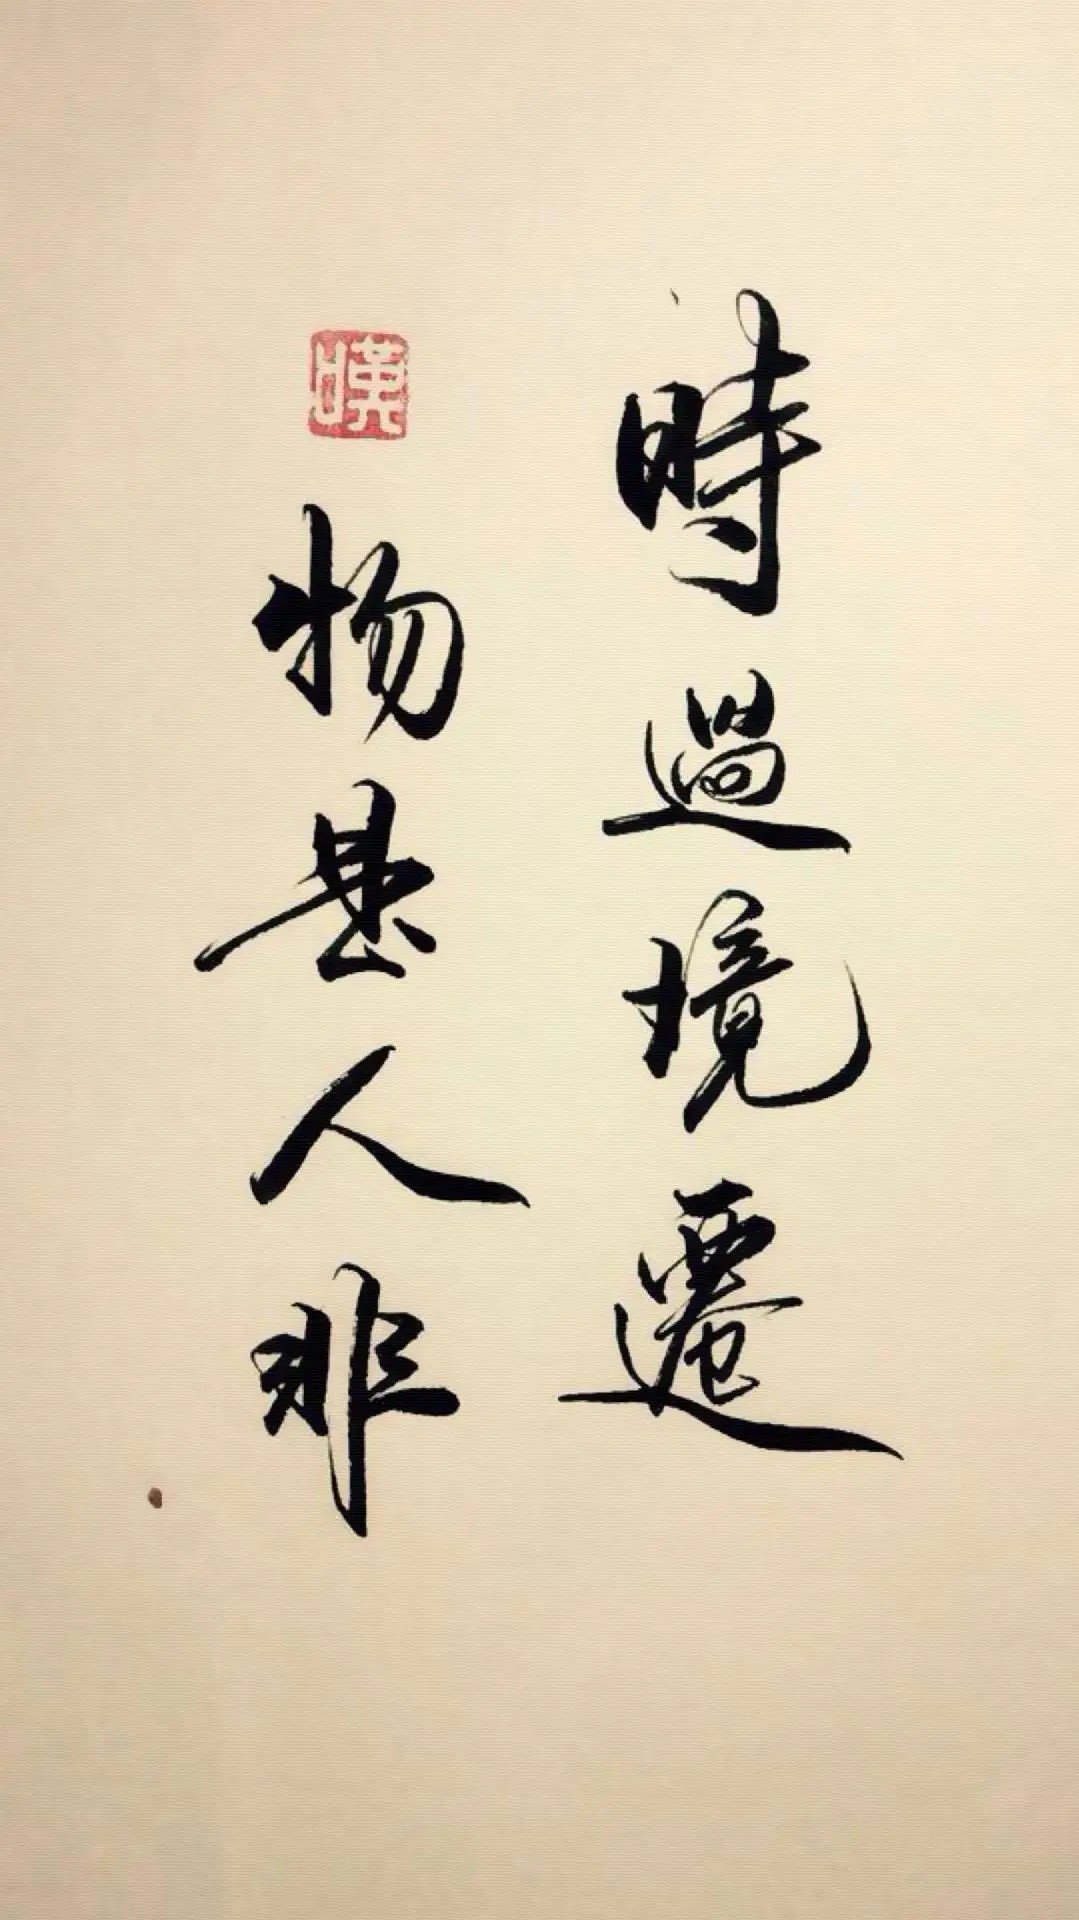 時過境遷
物是人非